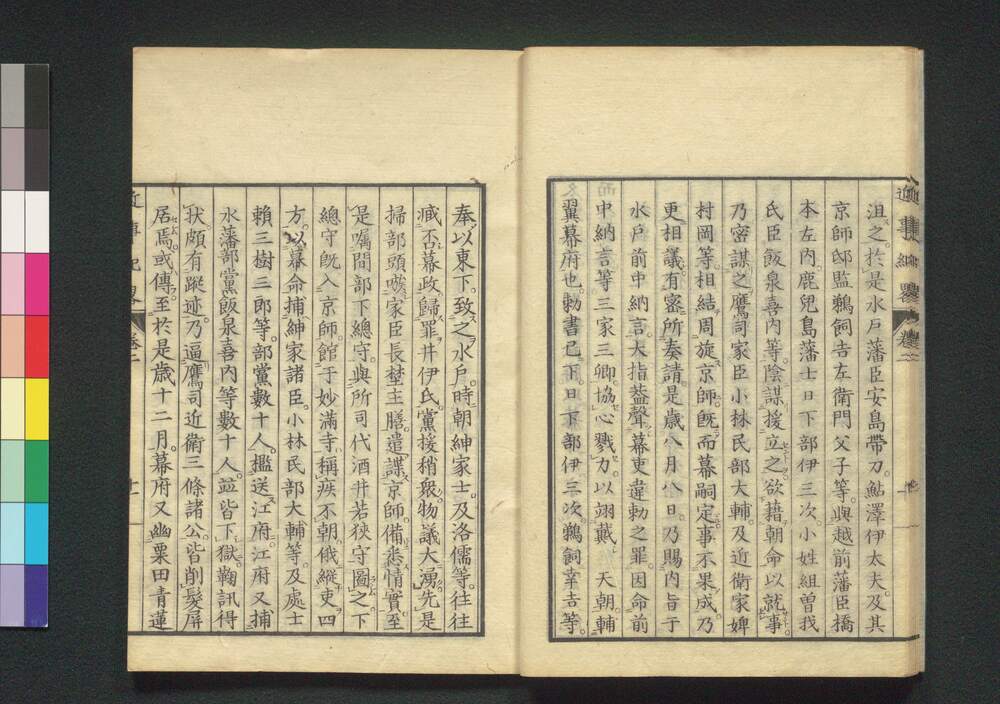 沮之於是水戶藩臣安島帶刀鮎澤伊太夫及其
京師邸監鵜飼吉左衛門父子等與越前藩臣橋
本左內鹿兒島藩士日下部伊三次小姓組曾我
氏臣飯泉喜內等陰謀援立之欲藉朝命以就事
乃密謀之鷹司家臣小林民部大輔及近衛家婢
村岡等相結周旋京師既而幕嗣定事不果成乃
更相議有密所奏請是歲八月八日乃賜內旨于
水戶前中納言大指蓋聲幕吏違勅之罪因命前
中納言等三家三卿協心戮力以翊戴 天朝輔
翼幕府也勅書已下日下部伊三次鵜飼幸吉等
奉以東下致之水戶時朝紳家士及洛儒等往往
臧否幕政歸罪井伊氏黨援稍衆物議大湧先是
掃部頭嗾家臣長埜主膳遣諜京師備悉情實至
是囑間部下總守與所司代酒井若狹守圖之下
總守既入京師館于妙滿寺稱疾不朝俄縱吏四
方以幕命捕紳家諸臣小林民部大輔等及處士
賴三樹三郎等部黨數十人檻送江府江府又捕
水藩部黨飯泉喜內等數十人並皆下獄鞠訊得
狀頗有蹤迹乃逼鷹司近衛三條諸公皆削髮屏
居焉或傳至於是歲十二月幕府又幽粟田青蓮